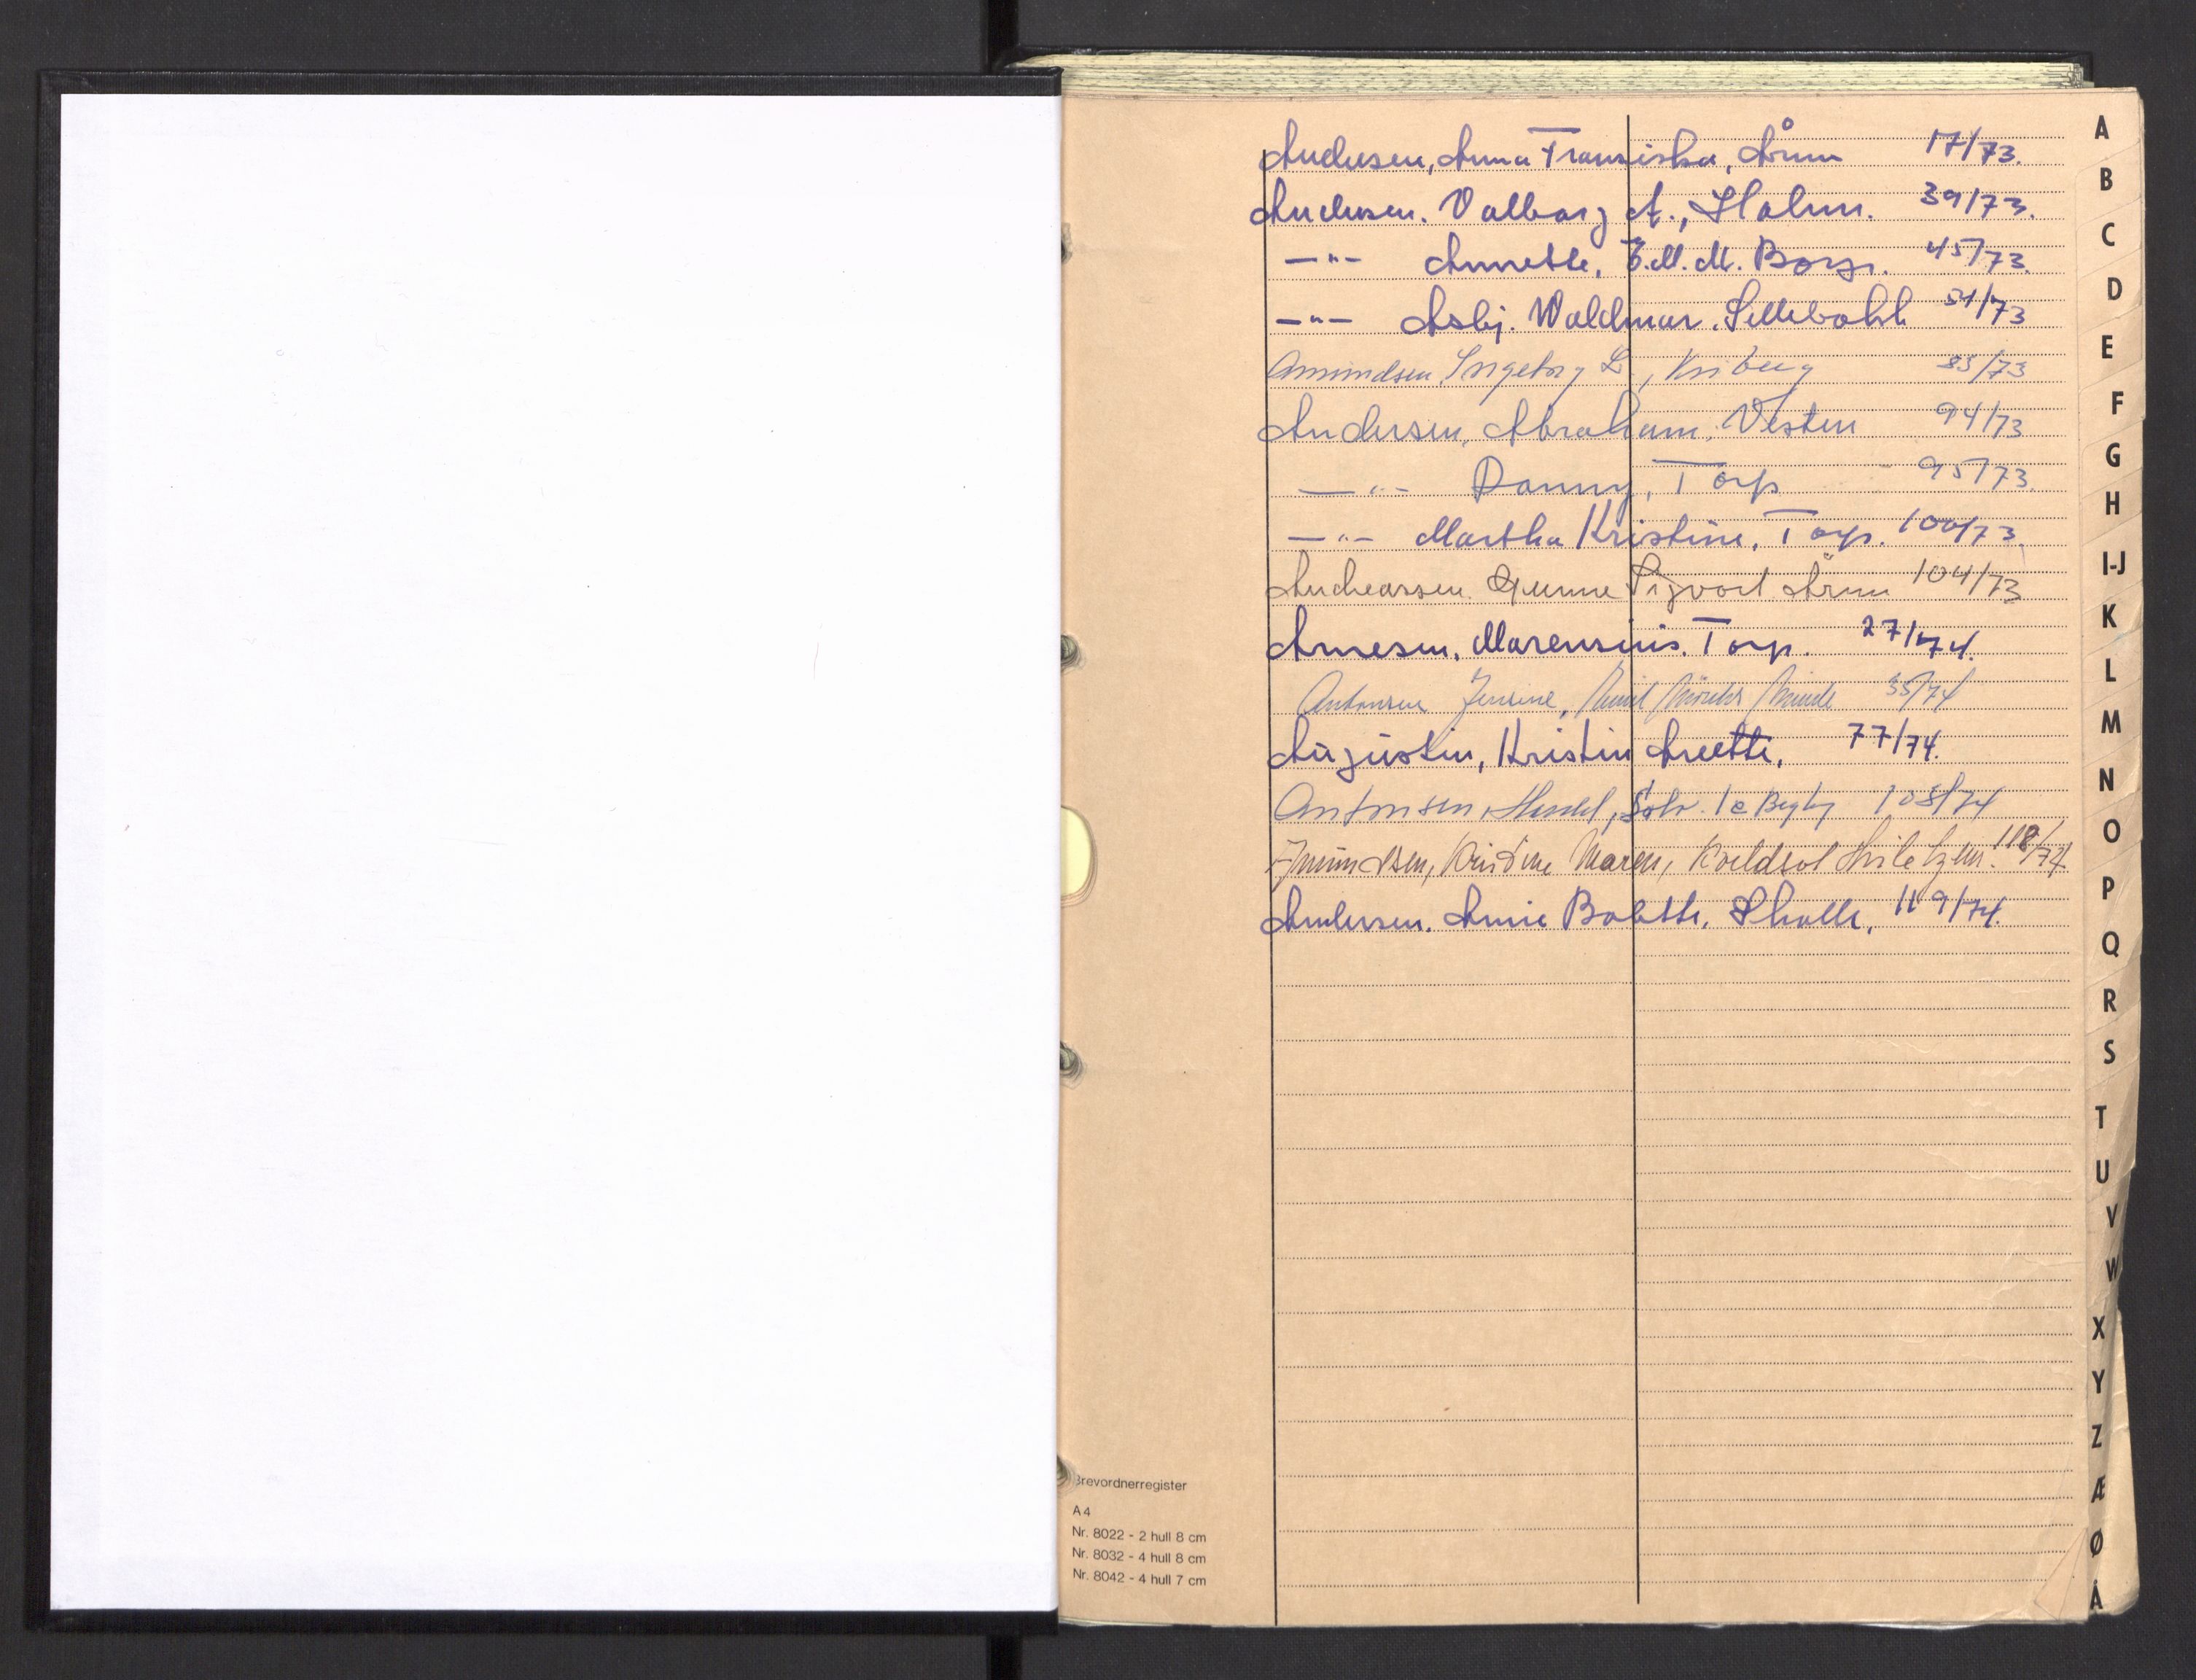 Andersen, Anna Franziska, Årum 17/73.
Andersen. Valborg A., Holm. 39/73.
—"— Annette, E.M.M. Borge. 45/73.
—"— Asbj. Waldmar. Sellebakk 51/73
Amundsen, Ingeborg L., Kriberg 85/73
Andersen, Abraham. Vesten 94/73
—"— Ranny, Torp 95/73.
—"— Martha Kristine. Torp. 100/73.
Andreassen. Gunne Sigvart Årum 104/73
Arnesen. Marensius. Torp. 27/74.
Antonsen Jensine, Minde 35/74
Augustin, Kristin Anette, 77/74.
Antonsen, Solv. 1c Begby 108/74
Amundsen, Kristine Maren, Kveldsol 118/74
Andersen. Annie Bolette. Skolle, 119/74.
A
B
C
D
E
F
G
H
I-J
K
L
M
N
O
P
Q
R
S
T
U
V
W
X
Y
Z
Æ
Ø
Å
Brevordnerregister
A4
Nr. 8022 - 2 hull 8 cm
Nr. 8032 - 4 hull 8 cm
Nr. 8042 - 4 hull 7 cm